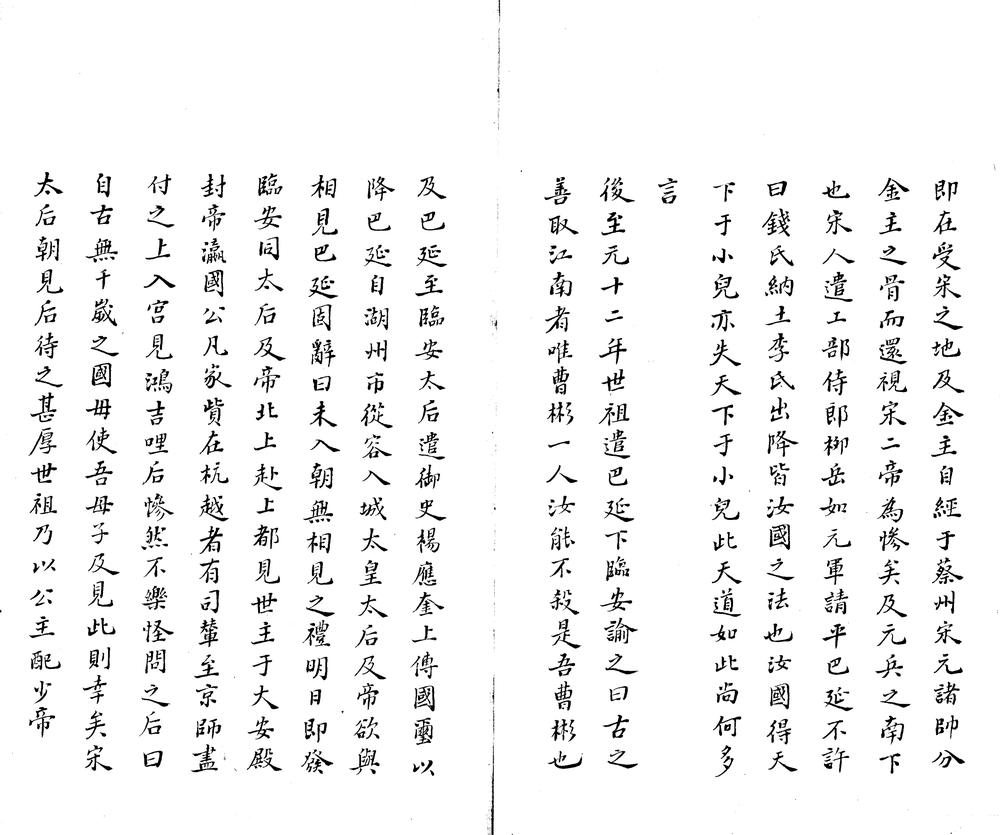 即在受宋之地及金主自經于蔡州宋元諸帥分
金主之骨而還視宋二帝為慘矣及元兵之南下
也宋人遣工部侍郎柳岳如元軍請平巴延不許
曰錢氏納土李氏出降皆汝國之法也汝國得天
下于小兒亦失天下于小兒此天道如此尚何多
言
後至元十二年世祖遣巴延下臨安諭之曰古之
善取江南者唯曹彬一人汝能不殺是吾曹彬也
及巴延至臨安太后遣御史楊應奎上傳國璽以
降巴延自湖州市從容入城太皇太后及帝欲與
相見巴延固辭曰未入朝無相見之禮明日即發
臨安同太后及帝北上赴上都見世主于大安殿
封帝瀛國公凡家貲在杭越者有司輦至京師盡
付之上入宮見鴻吉哩后慘然不樂怪問之后曰
自古無千嵗之國毋使吾母子及見此則幸矣宋
太后朝見后待之甚厚世祖乃以公主配少帝